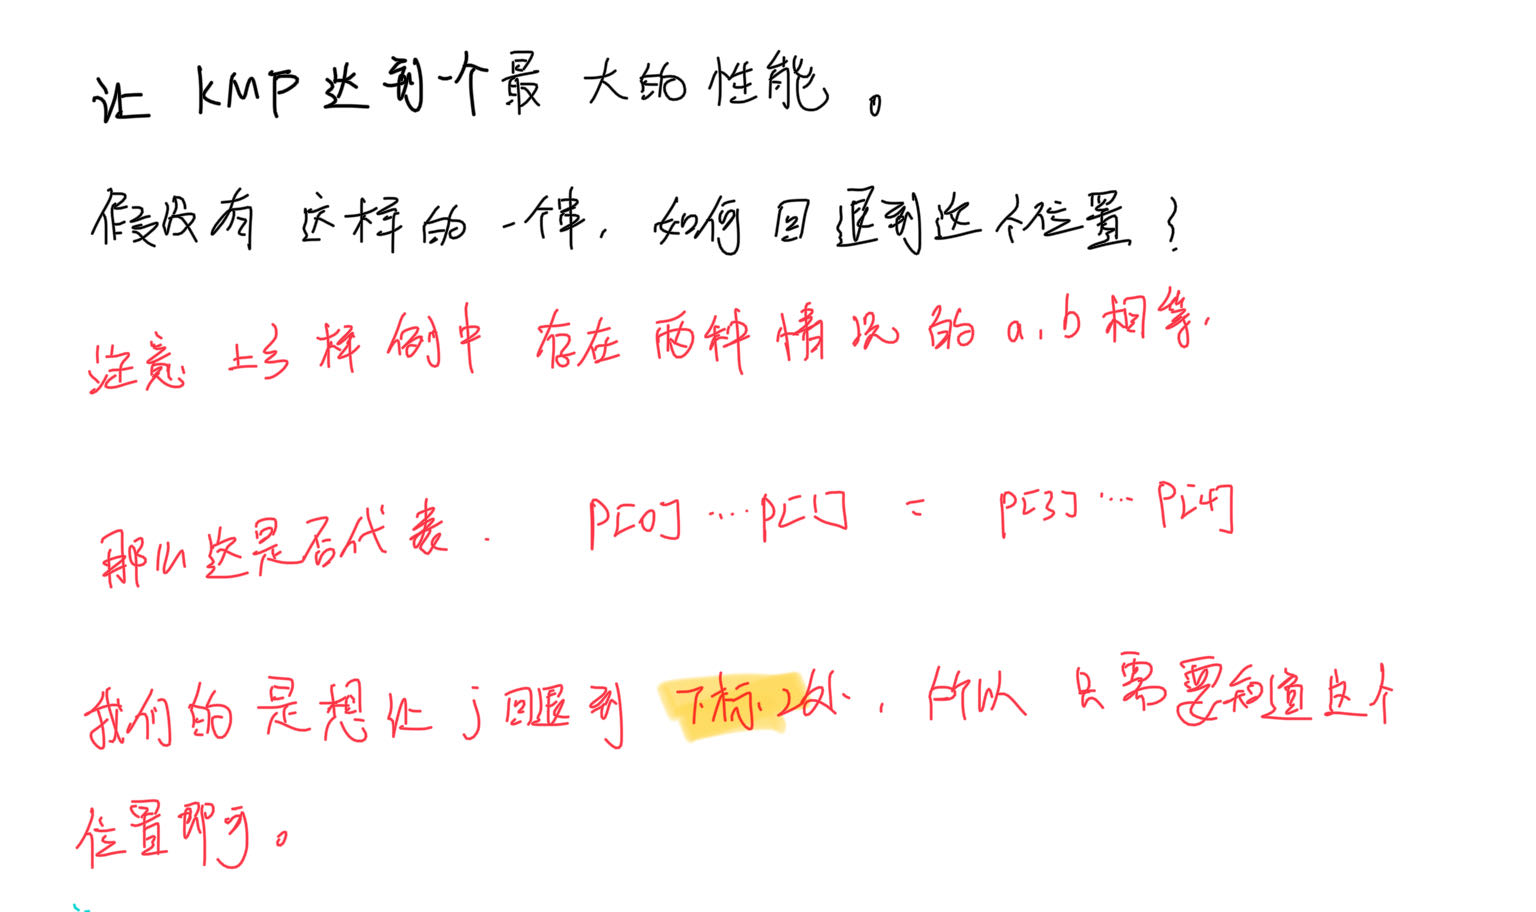 让 KMP 达到一个最 大的性能。
假设有 这样的一个串. 如何回退到这个位置?
注意 上 样例中 存在两种情况的 a, b 相等.
那么这是否代表. P[0] ... P[1] = P[3] ... P[4]
我们的是想让 j 回退到 下标 2处, 所以 只需要知道这个
位置即可。